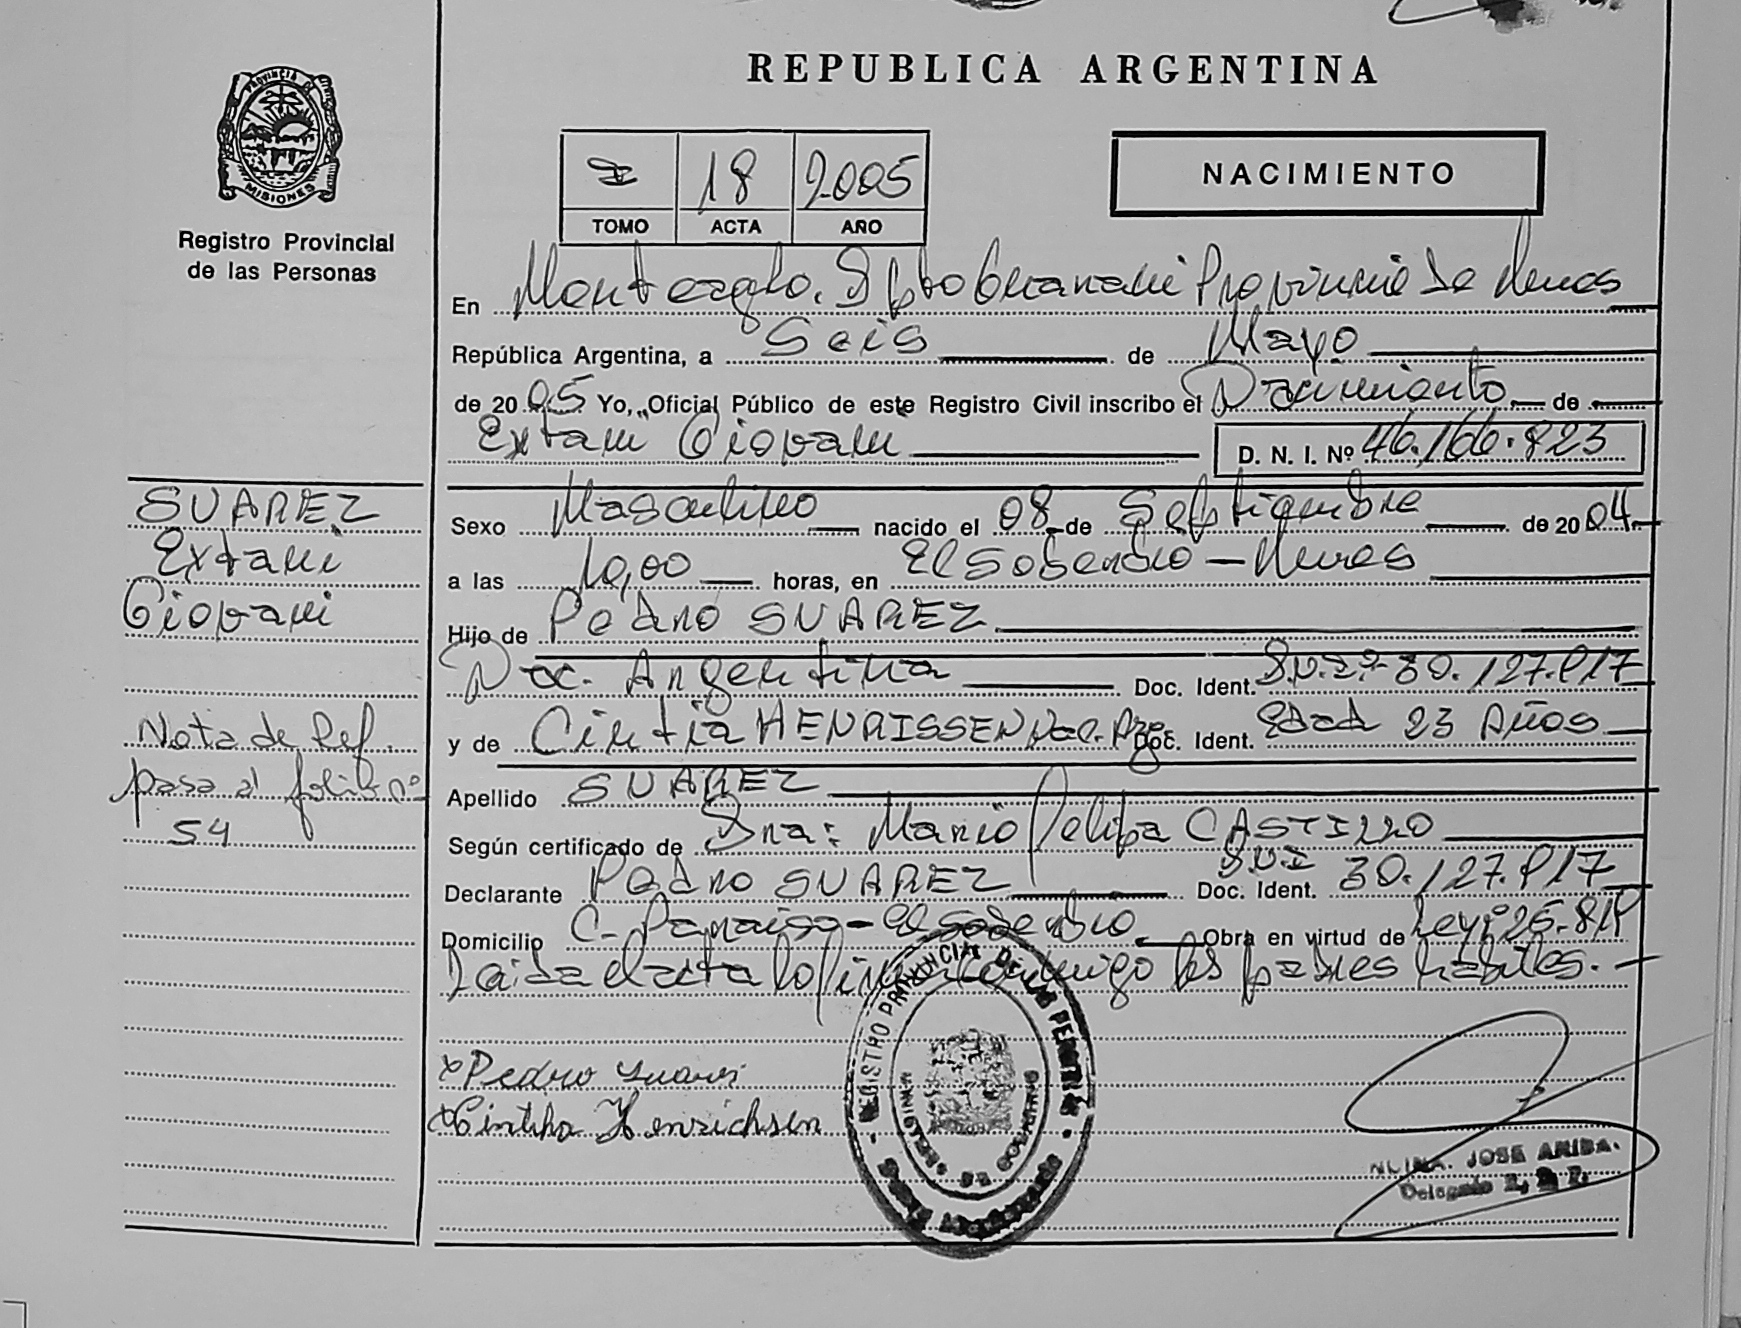 REPUBLICA ARGENTINA
PROVINCIA DE
MISIONES
Registro Provincial
de las Personas
I 18 2005
TOMO ACTA AÑO
NACIMIENTO
En Montecarlo. Dpto Provincia de
República Argentina, a Seis de Mayo
de 2005 Yo, Oficial Público de este Registro Civil inscribo el Nacimiento de
Extani Giovani
D. N. I. Nº 46.166.823
SUAREZ
Extani
Giovani
Sexo Masculino nacido el 08 de Septiembre de 2004
a las 10,00 horas, en El Soberbio -
Hijo de Pedro SUAREZ
Nac. Argentina Doc. Ident. 30.127.917
y de Cintia HENRISSEN Nac. Arg. Doc. Ident. Edad 23 Años
Nota de Ref.
pasa al folio nº
54
Apellido SUAREZ
Según certificado de Dra: Felipa CASTILLO
Declarante Pedro SUAREZ Doc. Ident. DNI 30.127.917
Domicilio C. Paraiso - El Soberbio Obra en virtud de Ley 25.819
Leida el acta lo firman conmigo los padres
x Pedro Suarez
x Cintha Henrichsen
REGISTRO PROVINCIAL DE LAS PERSONAS
MINISTERIO DE GOBIERNO
JOSE
Delegado